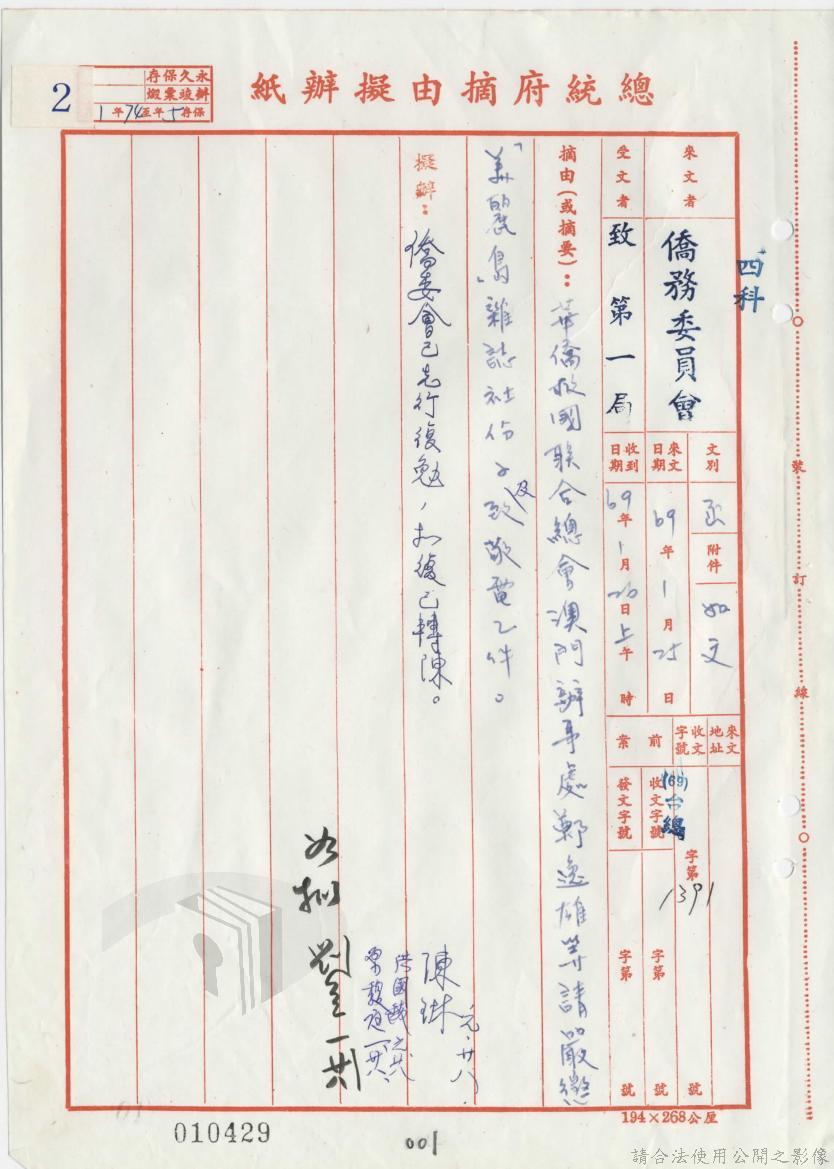 總統府摘由擬辦紙
永久保存
辦竣稟燬
保存5年至74年1
2
四科
來文者
僑務委員會
受文者
致第一局
文別
函
附件
如文
來文日期
69年1月25日
收到日期
69年1月26日上午 時
來文地址
收文字號
(69)台總
字第1391號
前案
收文字號
字第 號
發文字號
字第 號
摘由(或摘要):華僑救國联合總會澳門辦事處鄭逸雄等請嚴懲
「美麗島」雜誌社份子及致敬電乙件。
擬辦:僑委會已先行復勉,扣復已轉陳。
陳
元、廿八
如擬 劉
一廿八
裝訂線
194×268公厘
010429
001
請合法使用公開之影像